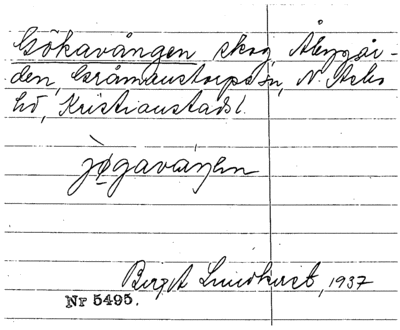 Gökavången skog, Åbygår-
den, Gråmanstorps sn, N. Åsbo
hd, Kristianstads l.
jøgavaŋen
Birgit Lundkvist, 1937
Nr 5495.